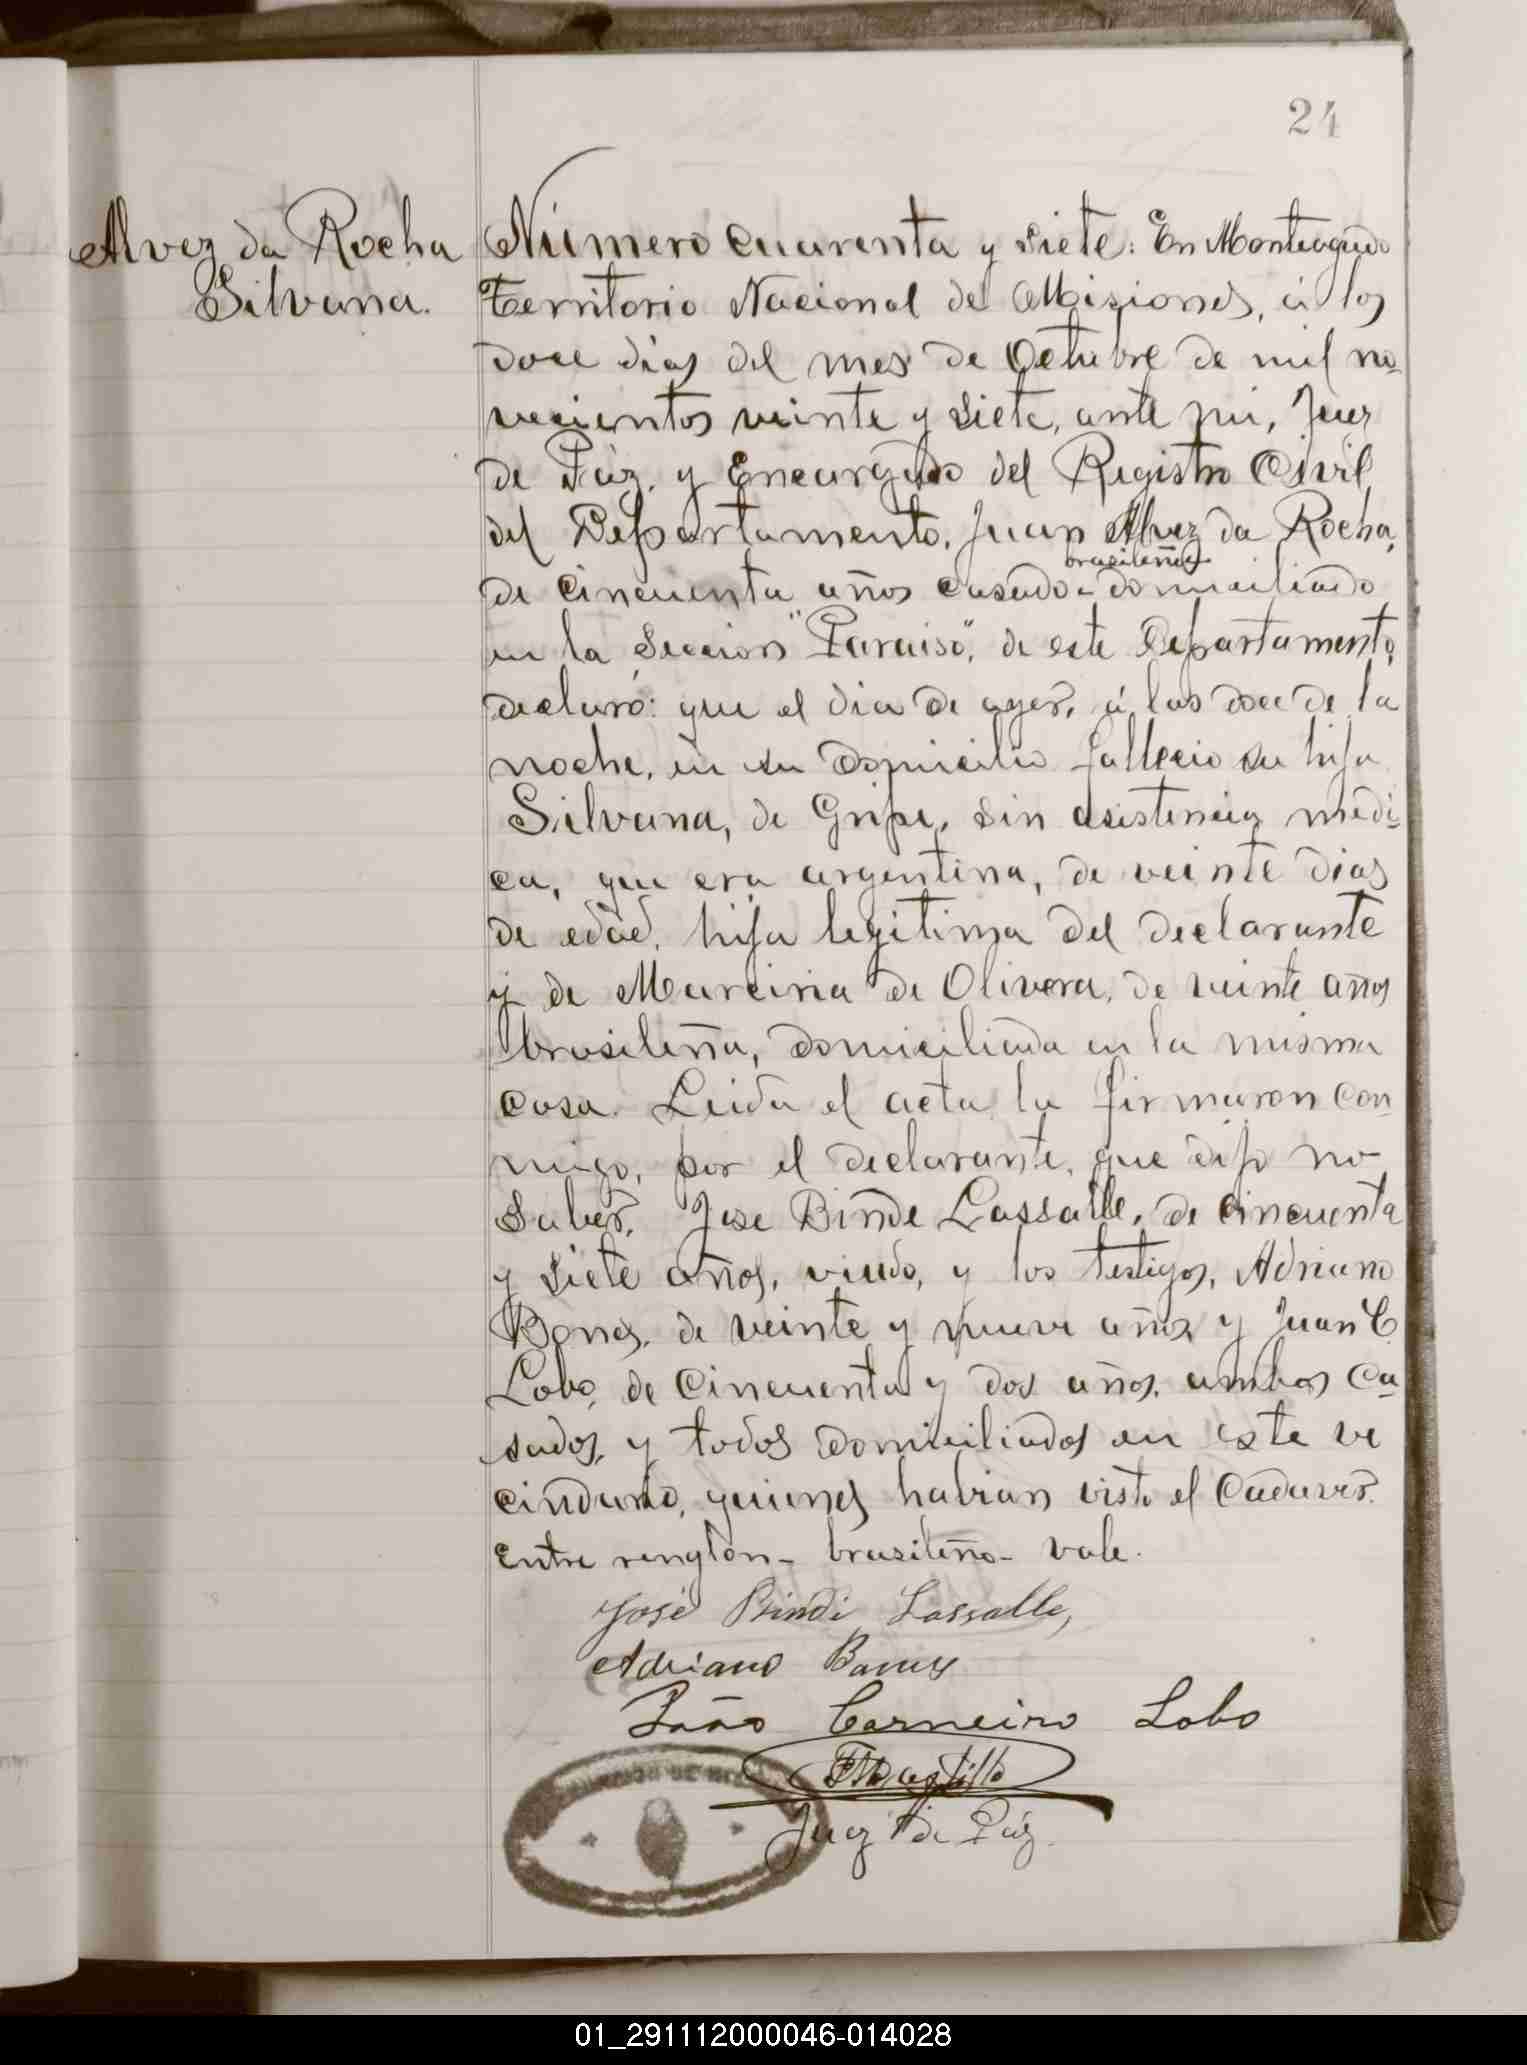 24
Alvez da Rocha
Silvana.
Número cuarenta y siete: En Monteagudo
Territorio Nacional de Misiones, á los
doce dias del mes de Octubre de mil no-
vecientos veinte y siete, ante mi, Juez
de Páz, y Encargado del Registro Civil
del Departamento, Juan Alvez da Rocha,
brasileño
de cincuenta años casado-domiciliado
en la Sección "Paraiso", de este Departamento,
declaró: que el dia de ayer, á las doce de la
noche, en su domicilio falleció su hija
Silvana, de Gripe, sin asistencia medi-
ca, que era argentina, de veinte dias
de edad, hija legitima del declarante
y de Marciria de Olivera, de veinte años
brasileña, domiciliada en la misma
casa. Leida el acta la firmaron con-
migo, por el declarante, que dijo no
saber, Jose Binde Lassalle, de cincuenta
y siete años, viudo, y los testigos, Adriano
Bones, de veinte y nueve años y Juan C.
Lobo, de cincuenta y dos años, ambos ca-
sados, y todos domiciliados en este ve
cindario, quienes habian visto el cadaver.
Entre renglon- brasileño- vale.
José Bindé Lassalle,
Adriano
João Carneiro Lobo
Juez de Páz.
01_291112000046-014028